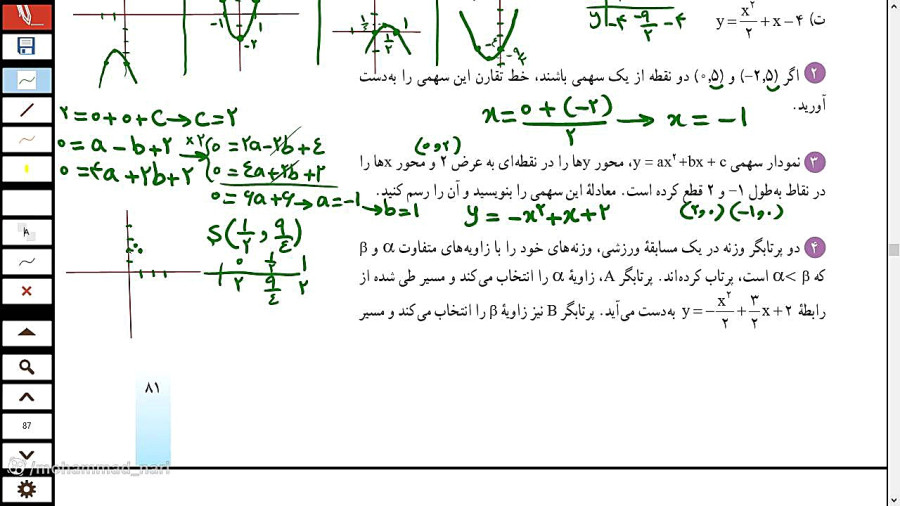 ت) y = x²/2 + x − ۴
y −۴ −۹/۲ −۴
−۱ ۱
−۲
۱/۲ ۱
۲ اگر (−۲,۵) و (۰,۵) دو نقطه از یک سهمی باشند، خط تقارن این سهمی را به‌دست
آورید.
x = (۰ + (−۲))/۲ → x = −۱
۲ = ۰ + ۰ + C → C = ۲
۰ = a − b + ۲ ×۲ → ۰ = ۲a − ۲b + ۴
۰ = ۴a + ۲b + ۲ ۰ = ۴a + ۲b + ۲
۰ = ۶a + ۶ → a = −۱ → b = ۱
(۰,۲)
۳ نمودار سهمی y = ax² + bx + c، محور yها را در نقطه‌ای به عرض ۲ و محور xها را
در نقاط به‌طول ۱− و ۲ قطع کرده است. معادلهٔ این سهمی را بنویسید و آن را رسم کنید.
y = −x² + x + ۲ (۲,۰) (−۱,۰)
S(۱/۲, ۹/۴)
۰ ۱/۲ ۱
۲ ۹/۴ ۲
۴ دو پرتابگر وزنه در یک مسابقهٔ ورزشی، وزنه‌های خود را با زاویه‌های متفاوت α و β
که α < β است، پرتاب کرده‌اند. پرتابگر A، زاویهٔ α را انتخاب می‌کند و مسیر طی شده از
رابطهٔ y = −x²/۲ + ۳/۲x + ۲ به‌دست می‌آید. پرتابگر B نیز زاویهٔ β را انتخاب می‌کند و مسیر
۸۱
87
/mohammad_nari